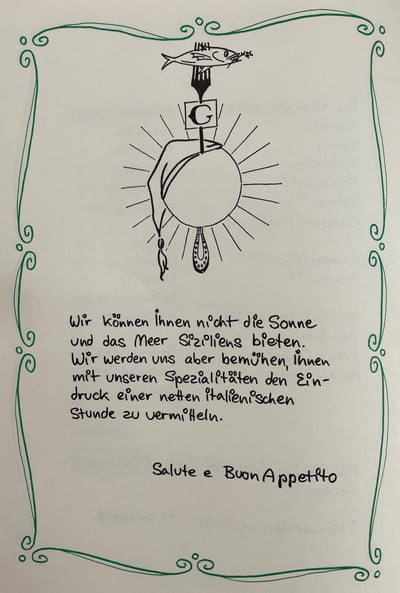 G
Wir können Ihnen nicht die Sonne
und das Meer Siziliens bieten.
Wir werden uns aber bemühen, Ihnen
mit unseren Spezialitäten den Ein-
druck einer netten italienischen
Stunde zu vermitteln.
Salute e Buon Appetito